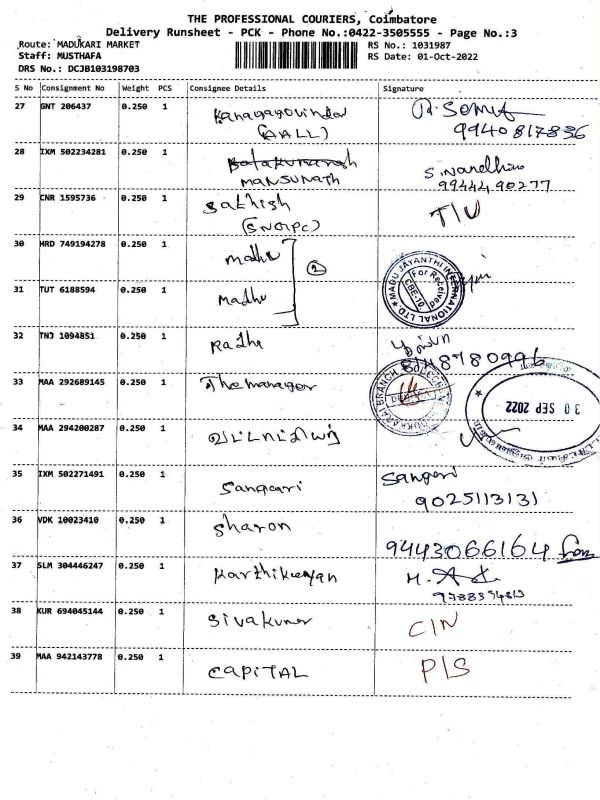 THE PROFESSIONAL COURIERS, Coimbatore
Delivery Runsheet - PCK - Phone No.:0422-3505555 - Page No.:3
Route: MADUKARI MARKET
Staff: MUSTHAFA
DRS No.: DCJB103198703
RS No.: 1031987
RS Date: 01-Oct-2022
S No Consignment No Weight PCS Consignee Details Signature
27 GNT 206437 0.250 1 Kanagagovindar
(AALL)
99940817836
28 IXM 502234281 0.250 1
MANSUNATH
S. Nandhini
9944490277
29 CNR 1595736 0.250 1 Sathish T/U
30 HRD 749194278 0.250 1 madhu
2
MADU JAYANTHI INTERNATIONAL LTD.
For Received
CBE-10
31 TUT 6188594 0.250 1 Madhu
32 TNJ 1094851 0.250 1 Radha
8148780996
33 MAA 292689145 0.250 1 The manager
30 SEP 2022
34 MAA 294200287 0.250 1 வட்டாட்சியர்
35 IXM 502271491 0.250 1 Sangari Sangari
9025113131
36 VDK 10023410 0.250 1 Sharon 9443066164
37 SLM 304446247 0.250 1 Karthikeyan
38 KUR 694045144 0.250 1 Sivakumar C/N
39 MAA 942143778 0.250 1 CAPITAL P/S